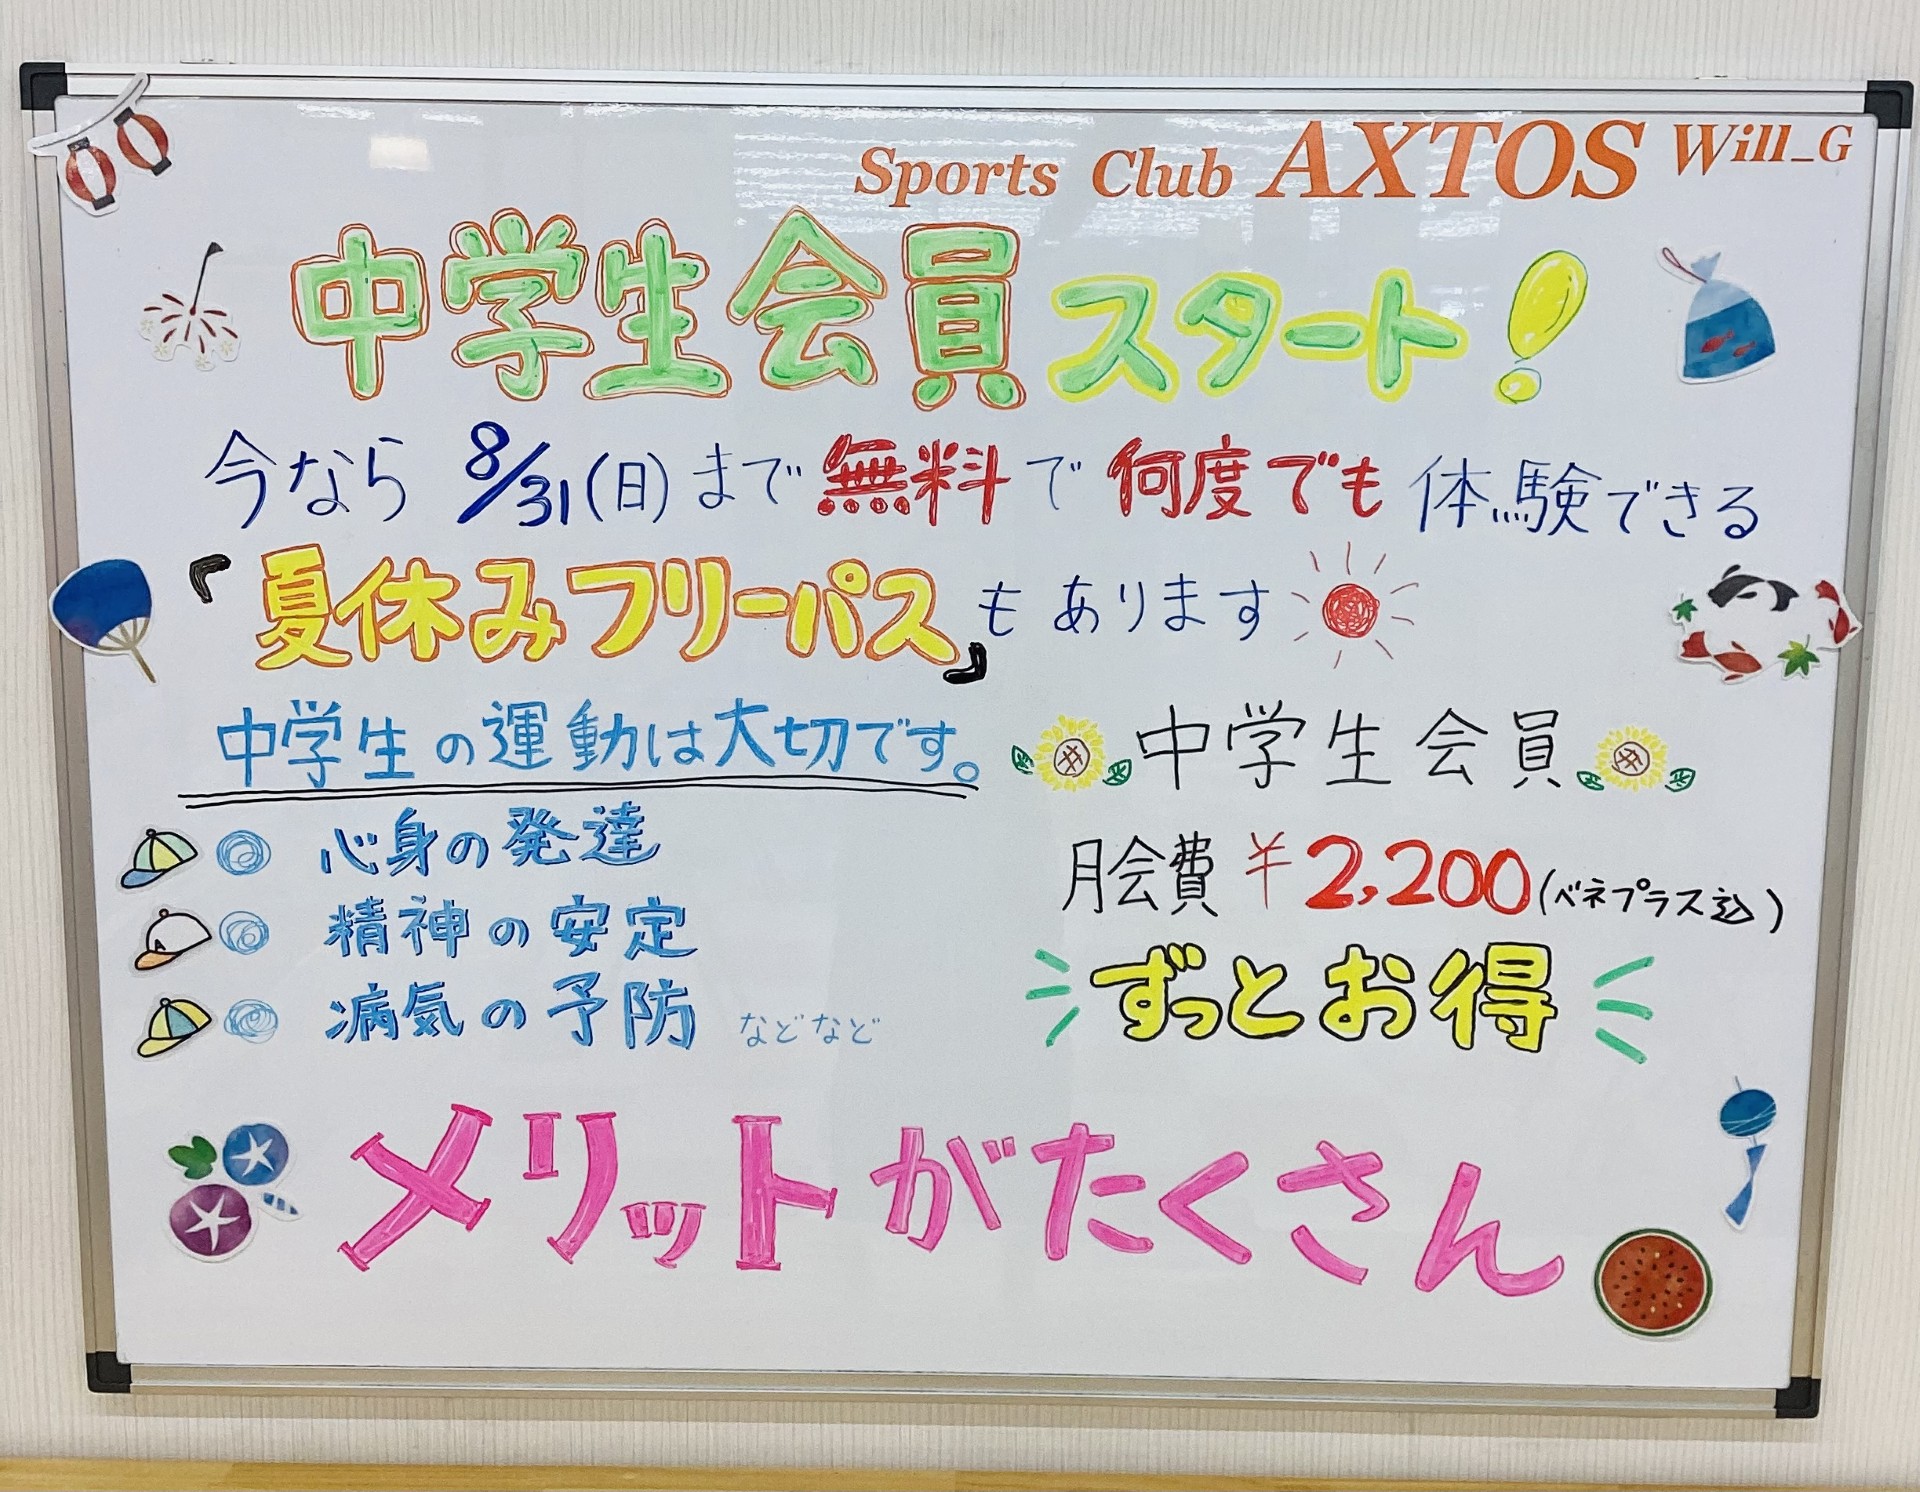 Sports Club AXTOS Will_G
中学生会員スタート!
今なら 8/31(日)まで無料で何度でも体験できる
『夏休みフリーパス』もあります
中学生の運動は大切です。
心身の発達
精神の安定
病気の予防 などなど
中学生会員
月会費 ¥2,200(ベネプラス込)
ずっとお得
メリットがたくさん